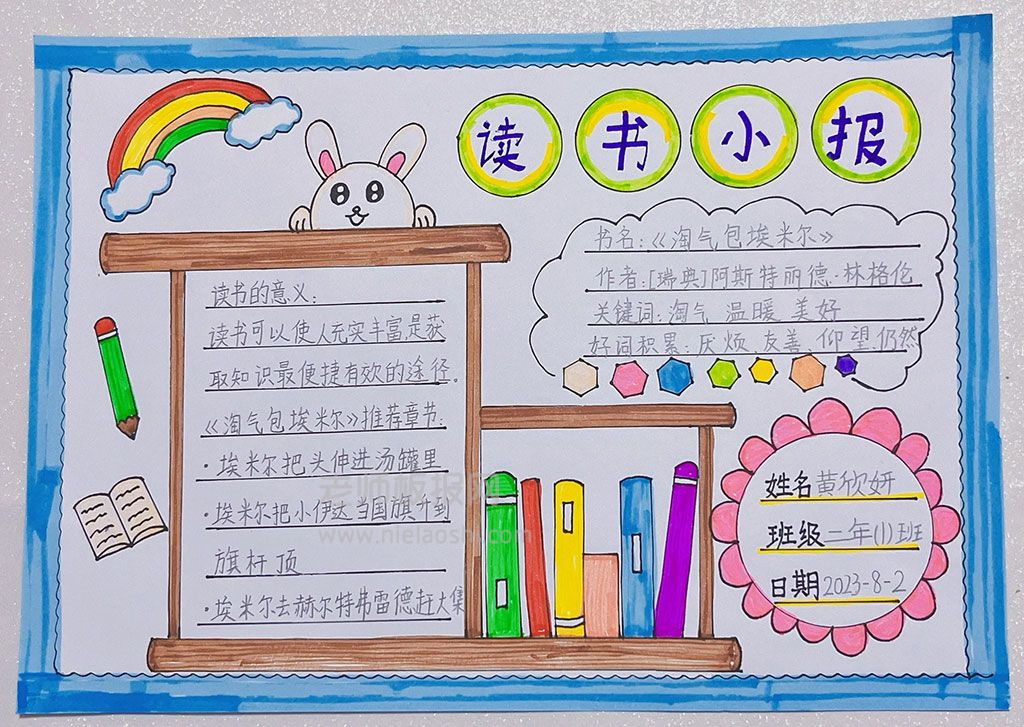 读书小报
书名:《淘气包埃米尔》
作者:[瑞典]阿斯特丽德·林格伦
关键词:淘气 温暖 美好
好词积累:厌烦、友善、仰望、仍然
读书的意义:
读书可以使人充实丰富,是获
取知识最便捷有效的途径。
《淘气包埃米尔》推荐章节:
·埃米尔把头伸进汤罐里
·埃米尔把小伊达当国旗升到
旗杆顶
·埃米尔去赫尔特弗雷德赶大集
姓名黄欣妍
班级二年(1)班
日期2023-8-2
老师板报网